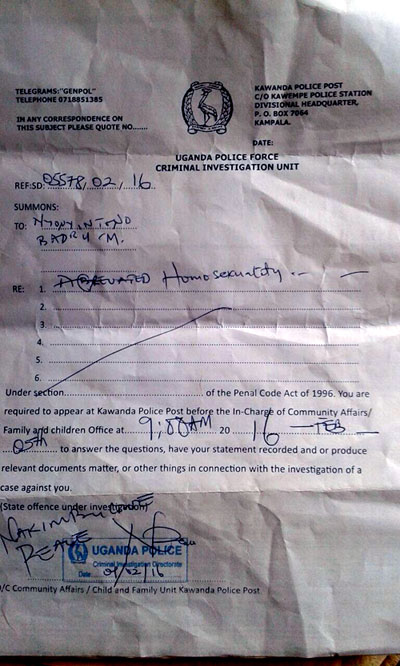 TELEGRAMS:"GENPOL"
TELEPHONE 0718851385
IN ANY CORRESPONDENCE ON
THIS SUBJECT PLEASE QUOTE NO.......
KAWANDA POLICE POST
C/O KAWEMPE POLICE STATION
DIVISIONAL HEADQUARTER,
P. O. BOX 7064
KAMPALA.
DATE:
UGANDA POLICE FORCE
CRIMINAL INVESTIGATION UNIT
REF:SD: 05578/02/16
SUMMONS:
TO: NYONYINTONO
BADRU M.
RE: 1. Homosexuality
2.
3.
4.
5.
6.
Under section.......................... of the Penal Code Act of 1996. You are
required to appear at Kawanda Police Post before the In-Charge of Community Affairs/
Family and children Office at 9:00AM 20 16 FEB
05th to answer the questions, have your statement recorded and or produce
relevant documents matter, or other things in connection with the investigation of a
case against you.
(State offence under investigation)
UGANDA POLICE
Criminal Investigation Directorate
Date 02/16
I/C Community Affairs / Child and Family Unit Kawanda Police Post